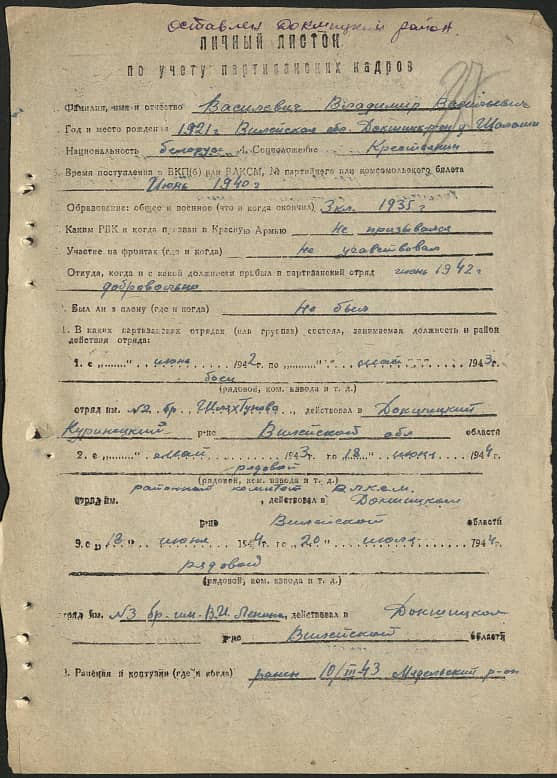 Оставлен Докшицкий район.
ЛИЧНЫЙ ЛИСТОК
по учету партизанских кадров
Фамилия, имя и отчество Василевич Владимир Васильевич
Год и место рождения 1921 г Вилейская обл. Докшицк
Национальность белорус 4. Соцположение Крестьянин
Время поступления в ВКП(б) или ВЛКСМ, № партийного или комсомольского билета
Июнь 1940 г
Образование: общее и военное (что и когда окончил) 3 кл. 1935 г
Каким РВК и когда призван в Красную Армию Не призывался
Участие на фронтах (где и когда) Не участвовал
Откуда, когда и с какой должности прибыл в партизанский отряд июнь 1942 г
добровольно
Был ли в плену (где и когда) Не был
1. В каких партизанских отрядах (или группах) состоял, занимаемая должность и район
действия отряда:
1. с „......." июня ...... 1942 г. по „......." май ... 1943 г.
боец
(рядовой, ком. взвода и т. д.)
отряд им. №2 бр. , действовал в Докшицкий
р-не Вилейской обл области
2. с „......." май ...... 1943 г. по „18" июнь .. 1944 г.
рядовой
(рядовой, ком. взвода и т. д.)
районный комитет ВЛКСМ
отряд им. , действовал в Докшицком
р-не Вилейской области
3. с „18" июня .... 1944 г. по „20" июля .... 1944 г.
рядовой
(рядовой, ком. взвода и т. д.)
отряд им. №3 бр. им. В.И. Ленина, действовал в Докшицком
р-не Вилейской области
Ранения и контузии (где и когда) ранен 10/III-43 Мядельский р-он